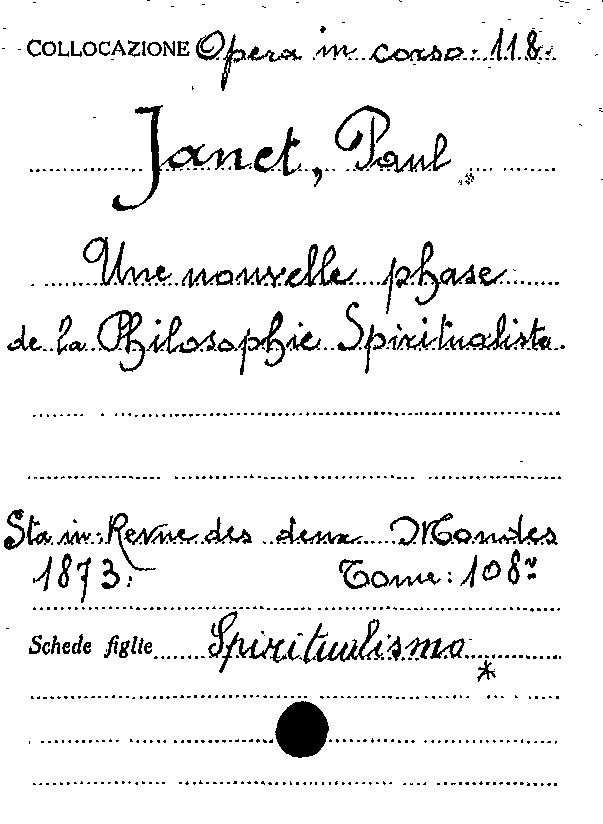 COLLOCAZIONE Opera in corso. 118.
Janet, Paul
Une nouvelle phase
de la Philosophie Spiritualista.
Sta in: Revue des deux Mondes
1873. Tome: 108º
Schede figlie Spiritualismo
*